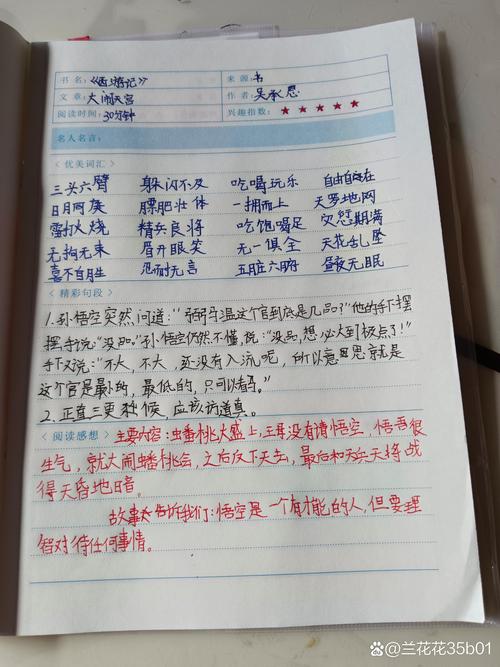 书 名：《西游记》 来 源：书
文 章：大闹天宫 作 者：吴承恩
阅读时间：30分钟 兴趣指数：★★★★★
名人名言：
〈优美词汇〉
三头六臂 躲闪不及 吃喝玩乐 自由自在
日月同庚 膘肥壮体 一拥而上 天罗地网
雷打火烧 精兵良将 吃饱喝足 灾愆期满
无拘无束 眉开眼笑 无一俱全 天花乱坠
喜不自胜 忍耐无言 五脏六腑 昼夜无眠
〈精彩句段〉
1.孙悟空突然问道："弼马温这个官到底是几品?"他的手下摆
摆手说："没品。"孙悟空仍然不懂，说："没品，想必大到极点了!"
手下又说："不大，不大，还没有入流呢，所以意思就是
这个官是最小的，最低的，只可以看马。"
2.正直三更时候，应该访道真。
〈阅读感想〉主要内容：蟠桃大盛上，王母没有请悟空，悟吾很
生气，就大闹蟠桃会，之后反下天去，最后和天兵天将战
得天昏地暗。
故事告诉我们：悟空是一个有才能的人，但要理
智对待任何事情。
兰花花35b01